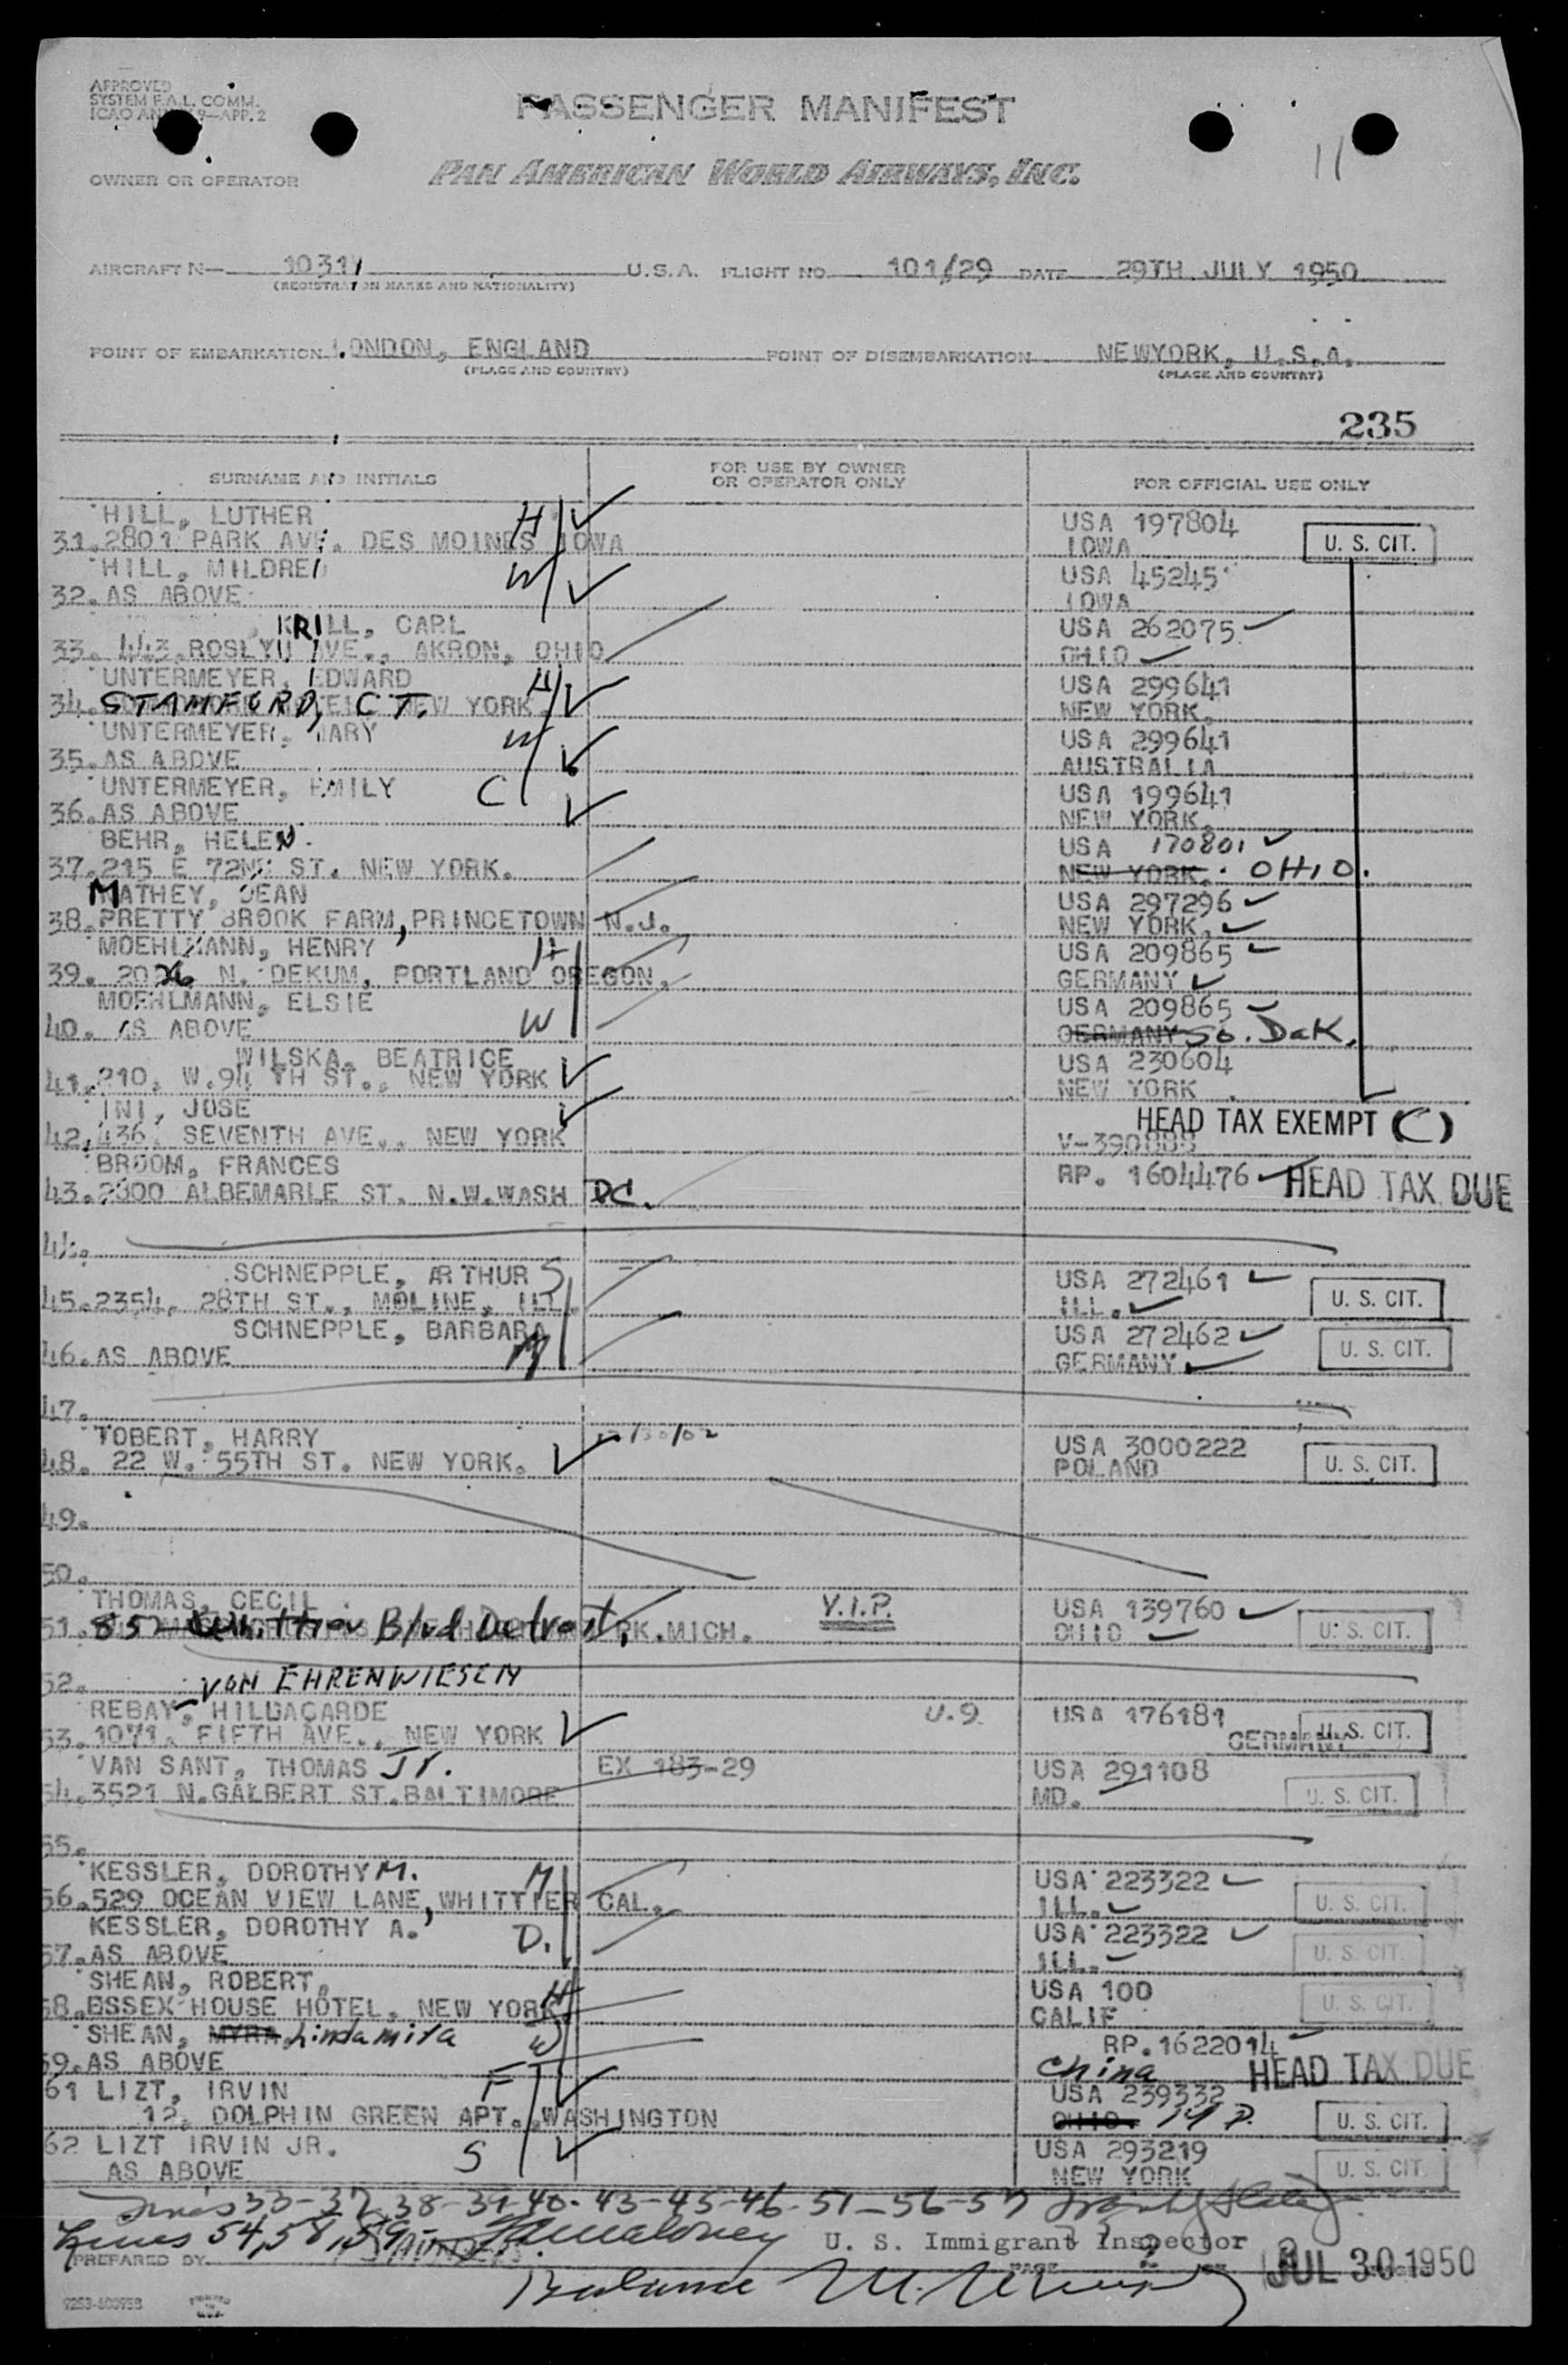 APPROVED
SYSTEM F.A.L. COMM.
ICAO ANNEX 9—APP. 2
PASSENGER MANIFEST
11
OWNER OR OPERATOR PAN AMERICAN WORLD AIRWAYS, INC.
AIRCRAFT N— 1031V U.S.A. FLIGHT NO. 101/29 DATE 29TH JULY 1950
(REGISTRATION MARKS AND NATIONALITY)
POINT OF EMBARKATION LONDON, ENGLAND POINT OF DISEMBARKATION NEWYORK, U.S.A.
(PLACE AND COUNTRY) (PLACE AND COUNTRY)
235
SURNAME AND INITIALS FOR USE BY OWNER OR OPERATOR ONLY FOR OFFICIAL USE ONLY
HILL, LUTHER H USA 197804
31. 2801 PARK AVE. DES MOINES IOWA IOWA U. S. CIT.
HILL, MILDRED W USA 45245
32. AS ABOVE IOWA
KRILL, CARL USA 262075
33. 443, ROSLYN AVE., AKRON, OHIO OHIO
UNTERMEYER, EDWARD H USA 299641
34. STAMFORD, CT. NEW YORK. NEW YORK.
UNTERMEYER, MARY W USA 299641
35. AS ABOVE AUSTRALIA
UNTERMEYER, EMILY C USA 199641
36. AS ABOVE NEW YORK.
BEHR, HELEN. USA 170801
37. 215 E 72ND ST. NEW YORK. NEW YORK. OHIO.
MATHEY, DEAN USA 297296
38. PRETTY BROOK FARM, PRINCETOWN N.J. NEW YORK.
MOEHLMANN, HENRY H USA 209865
39. 2026 N. DEKUM, PORTLAND OREGON. GERMANY
MOEHLMANN, ELSIE USA 209865
40. AS ABOVE W GERMANY So. Dak.
WILSKA, BEATRICE USA 230604
41. 210, W.94 TH ST., NEW YORK NEW YORK
INI, JOSE HEAD TAX EXEMPT (C)
42. 436, SEVENTH AVE., NEW YORK V-390888
BROOM, FRANCES RP. 1604476 HEAD TAX DUE
43. 2800 ALBEMARLE ST. N.W. WASH DC.
44.
SCHNEPPLE, ARTHUR S USA 272461
45. 2354, 28TH ST., MOLINE, ILL. ILL. U. S. CIT.
SCHNEPPLE, BARBARA USA 272462
46. AS ABOVE M GERMANY U. S. CIT.
47.
TOBERT, HARRY USA 3000222
48. 22 W. 55TH ST. NEW YORK. POLAND U. S. CIT.
49.
50.
THOMAS, CECIL V.I.P. USA 139760
51. 857 Whittier Blvd Detroit, PK.MICH. OHIO U. S. CIT.
52. VON EHRENWIESEN
REBAY, HILDAGARDE U.S. USA 176181
53. 1071, FIFTH AVE., NEW YORK GERMANY U. S. CIT.
VAN SANT, THOMAS Jr. EX 183-29 USA 291108
54. 3521 N.GALBERT ST.BALTIMORE MD. U. S. CIT.
55.
KESSLER, DOROTHY M. M USA 223322
56. 529 OCEAN VIEW LANE, WHITTIER CAL. ILL. U. S. CIT.
KESSLER, DOROTHY A. D. USA 223322
57. AS ABOVE ILL. U. S. CIT.
SHEAN, ROBERT, H USA 100
58. ESSEX HOUSE HOTEL, NEW YORK. CALIF U. S. CIT.
SHEAN, MYRA Linda mira W RP. 1622014
59. AS ABOVE China HEAD TAX DUE
61 LIZT, IRVIN F USA 239332
12, DOLPHIN GREEN APT., WASHINGTON OHIO. U. S. CIT.
62 LIZT IRVIN JR. S USA 293219
AS ABOVE NEW YORK U. S. CIT.
Lines 33-37-38-39-40-43-45-46-51-56-57
Lines 54, 58, 59 Maloney U. S. Immigrant Inspector
PREPARED BY PAGE 2 JUL 30 1950
Balance
PRINTED IN U.S.A.